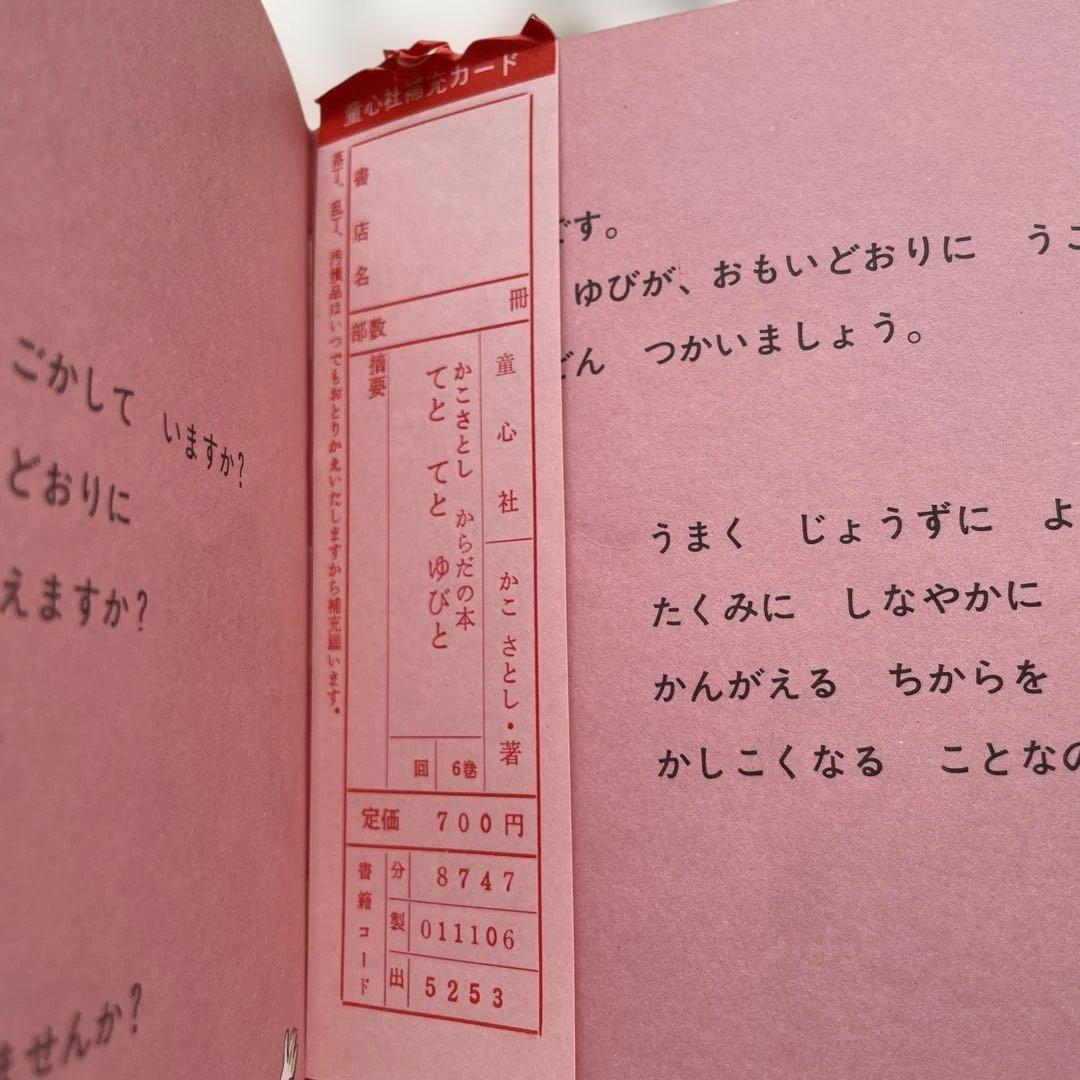 ごかして いますか?
どおりに
えますか?
ませんか?
童心社補充カード
落丁、乱丁、汚損品はいつでもおとりかえいたしますから補充願います。
書店名
冊
部数
摘要
童心社
かこ さとし・著
かこさとし からだの本
てと てと ゆびと
6巻
回
定価 700円
書籍コード
分 8747
製 011106
出 5253
です。
ゆびが、おもいどおりに うご
どん つかいましょう。
うまく じょうずに よ
たくみに しなやかに
かんがえる ちからを
かしこくなる ことなの